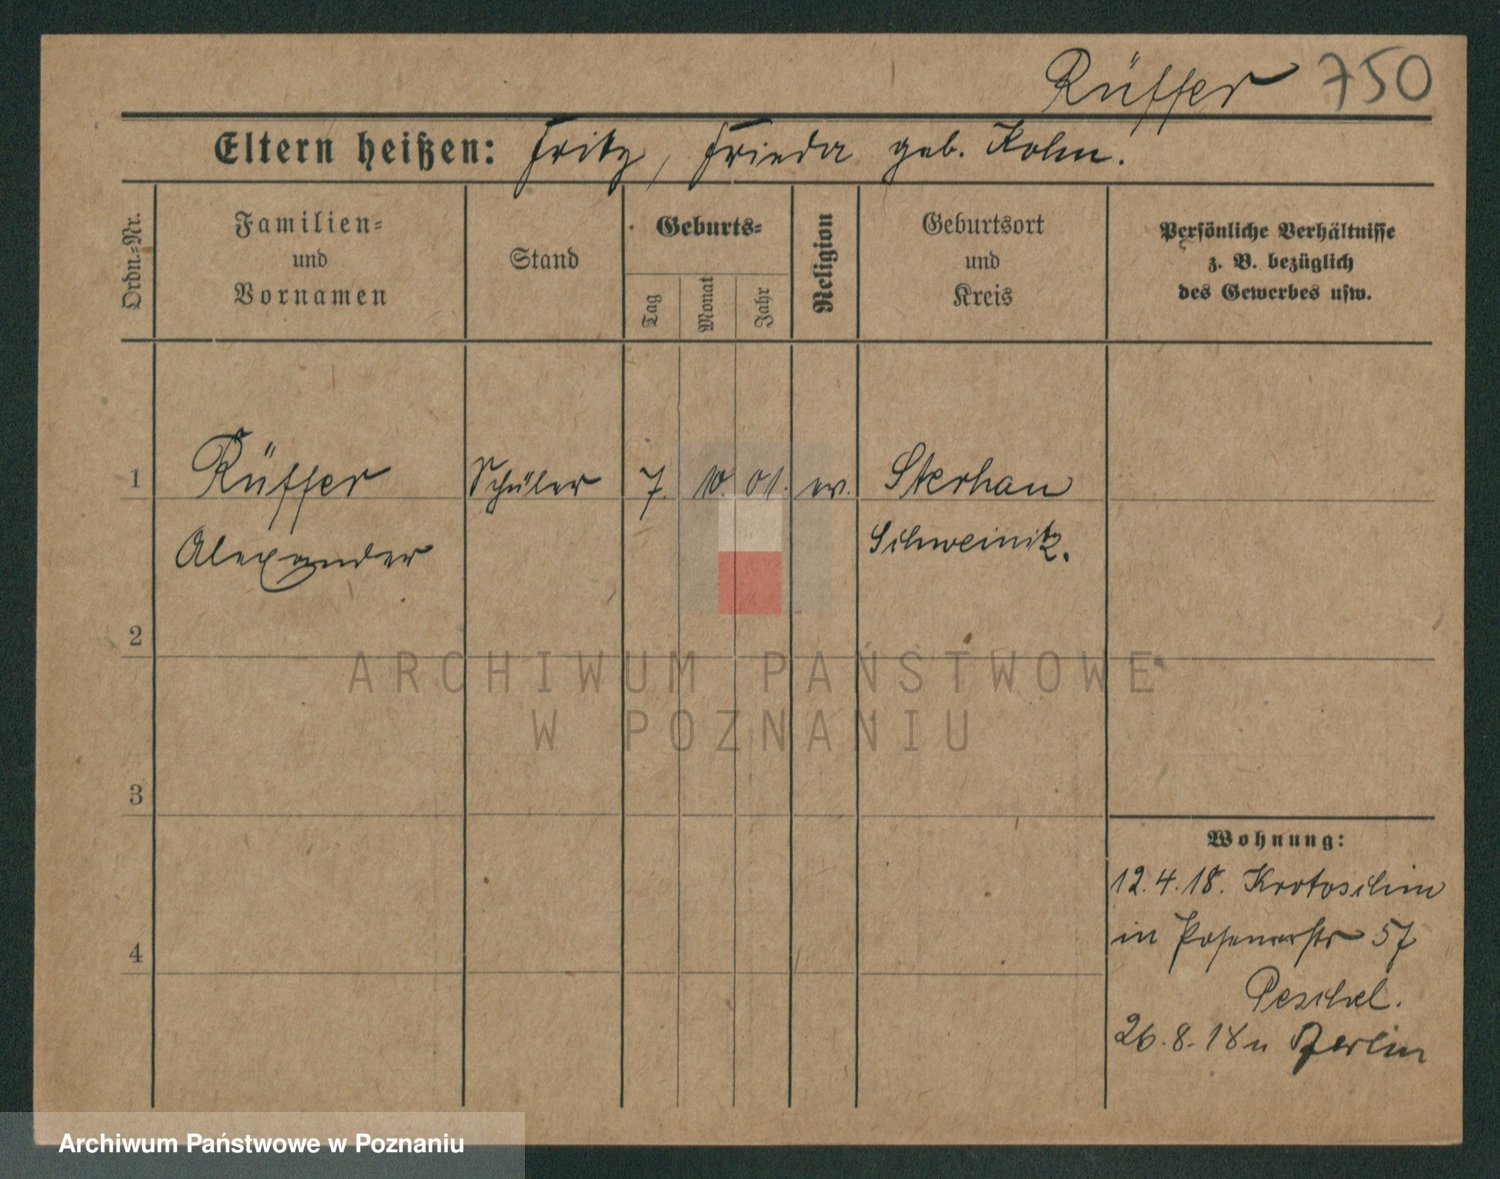 Rüffer 750
Eltern heißen: Fritz, Frieda geb. Kolm.
Ordn.-Nr.
Familien-
und
Vornamen
Stand
Geburts-
Tag
Monat
Jahr
Religion
Geburtsort
und
Kreis
Persönliche Verhältnisse
z. B. bezüglich
des Gewerbes usw.
1 Rüffer Schüler 7. 10. 01. ev.
Alexander Schweinitz.
2
ARCHIWUM PAŃSTWOWE
W POZNANIU
3
Wohnung:
12.4.18. Krotoschin
in Posenerstr 57
4
Peschel.
26.8.18 n Berlin
Archiwum Państwowe w Poznaniu